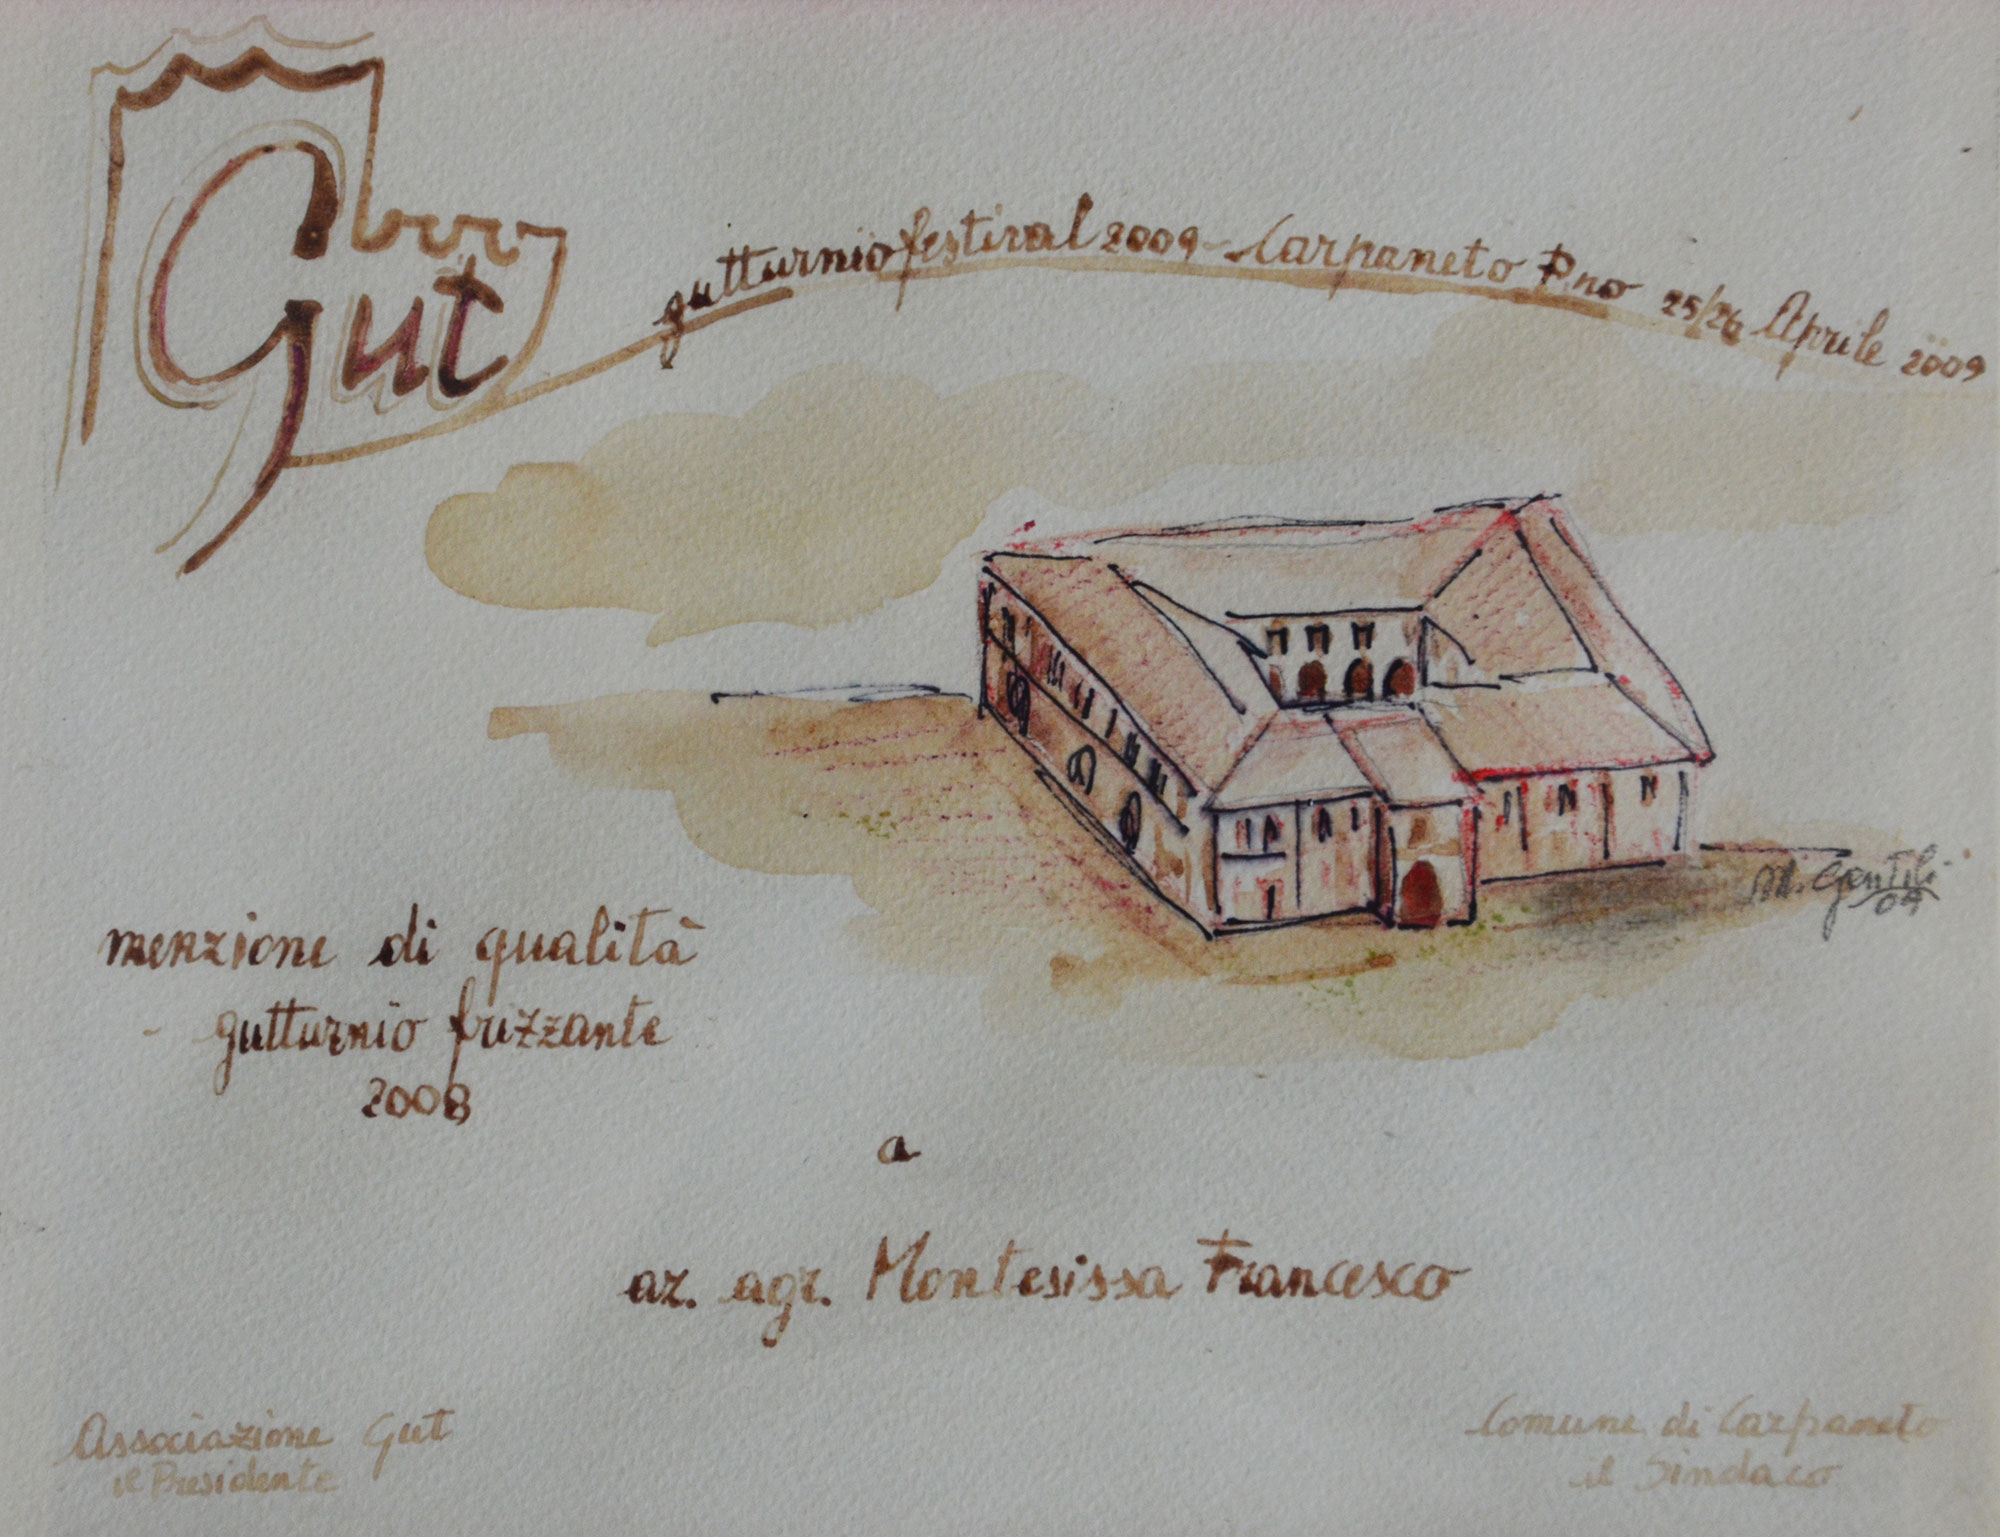 Gut
gutturnio festival 2009 - Carpaneto P.no 25/26 Aprile 2009
M. Gentili
09
menzione di qualità
gutturnio frizzante
2008
a
az. agr. Montesissa Francesco
Associazione Gut
il Presidente
Comune di Carpaneto
il Sindaco